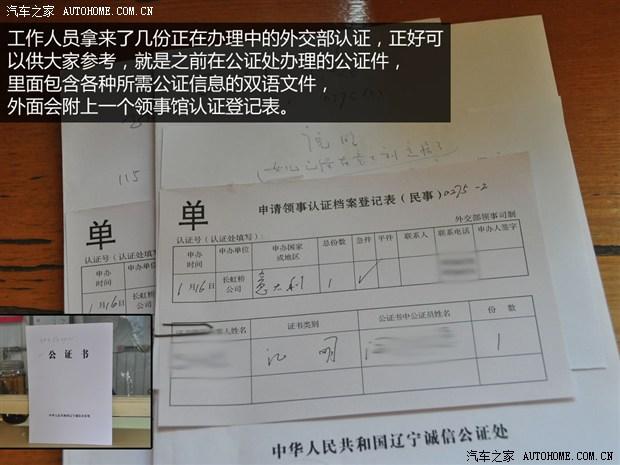 汽车之家 AUTOHOME.COM.CN
汽车之家 AUTOHOME.COM.CN
工作人员拿来了几份正在办理中的外交部认证，正好可
以供大家参考，就是之前在公证处办理的公证件，
里面包含各种所需公证信息的双语文件，
外面会附上一个领事馆认证登记表。
说明
115
单
申请领事认证档案登记表（民事）0275-2
认证号（认证处填写）：
外交部领事司制
申办时间 申办单位 申办国家或地区 总份数 急件 平件 联系人 联系电话 申办人签字
1月16日 长虹桥公司 意大利 1 ✓
人姓名 证书类别 公证书中公证员姓名 份数
证明 1
单
认证号（认证处填写
申办时间 申办单位
1月16日 长虹桥公司
公证书
中华人民共和国辽宁诚信公证处
汽车之家 AUTOHOME.COM.CN